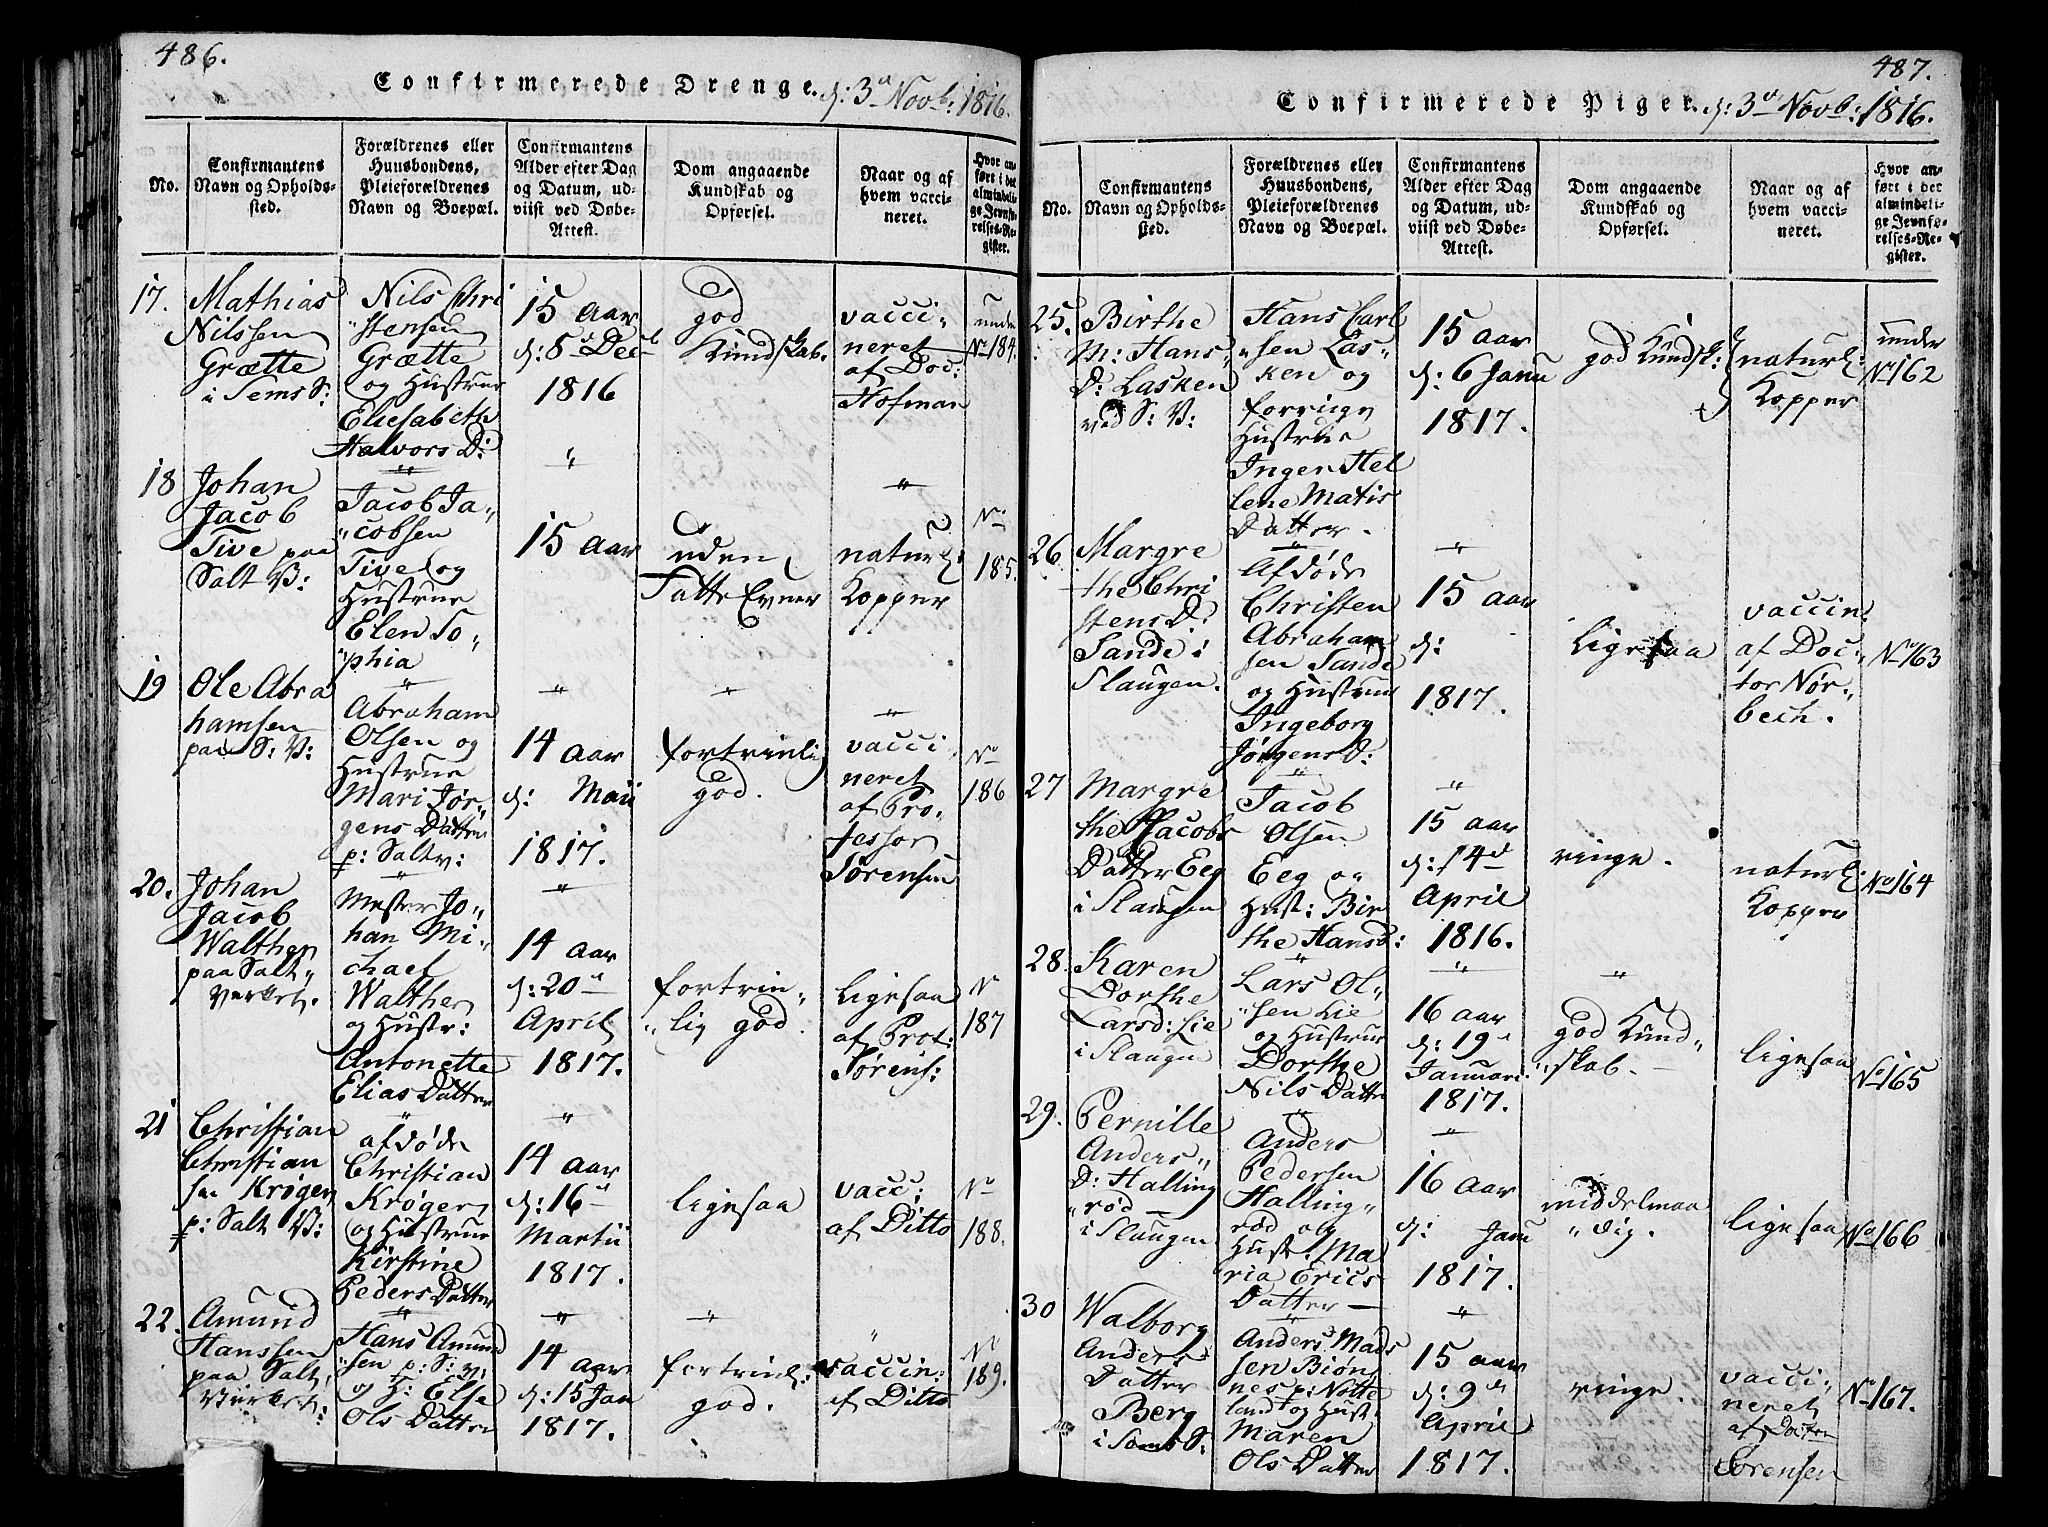 486.
Confirmerede Drenge. d: 3d Novb: 1816.
No.
Confirmantens
Navn og Opholds-
sted.
Forældrenes eller
Huusbondens,
Pleieforældrenes
Navn og Boepæl.
Confirmantens
Alder efter Dag
og Datum, ud-
viist ved Døbe-
Attest.
Dom angaaende
Kundskab og
Opførsel.
Naar og af
hvem vacci-
neret.
Hvor an-
ført i det
almindeli-
ge Jevnfø-
relses-Re-
gister.
17.
Mathias
Nilssen
Grætte
i Sems S:
Nils Chri
"stensen
Grætte
og Hustrue
Eliesabeth
Halvors D:
15 Aar
d: 8d Dec
1816
god
Kundskab.
vacci-
neret
af Doc:
Hofman
under
No 184.
18
Johan
Jacob
Tive paa
Salt V:
Jacob Ja-
"cobsen
Tive og
Hustrue
Elen So-
"phia
15 Aar
uden
Fatte Evner
naturl:
Kopper
No
185.
19
Ole Abra
hamsen
paa S: V:
Abraham
Olsen og
Hustrue
Mari Jør-
gens Datter
p: Saltv:
14 Aar
d: Maii
1817.
fortrinlig
god.
vacci
neret
af Pro-
fessor
Sørensen
No
186
20.
Johan
Jacob
Walther
paa Salt-
Verket.
Mester Jo-
han Mi-
chael
Walther
og Hustr:
Antonette
Elias Datter
14 Aar
d: 20d
April
1817.
fortrin-
"lig god.
ligesaa
af Prof:
Sørens:
No
187
21
Christian
Christian
sen Krøger
p: Salt V:
afdøde
Christian
Krøger
og Hustrue
Kirstine
Peders Datter
14 Aar
d: 16d
Martii
1817.
ligesaa
vacc:
af Ditto
No
188.
22.
Amund
Hanssen
paa Salt-
Værket:
Hans Amund
"sen p: S: V:
og H: Else
Ols Datter
14 Aar
d: 15 Jan
1817.
fortrinl:
god.
vaccin:
af Ditto
No
189.
487.
Confirmerede Piger. d: 3d Novb: 1816.
No.
Confirmantens
Navn og Opholds-
sted.
Forældrenes eller
Huusbondens,
Pleieforældrenes
Navn og Boepæl.
Confirmantens
Alder efter Dag
og Datum, ud-
viist ved Døbe-
Attest.
Dom angaaende
Kundskab og
Opførsel.
Naar og af
hvem vacci-
neret.
Hvor an-
ført i det
almindeli-
ge Jevnfø-
relses-Re-
gister.
25.
Birthe
M: Hans-
D: Lasken
ved S: V:
Hans Carl
"sen Las-
ken og
forrige
Hustrue
Inger Hel
lene Matis
Datter.
15 Aar
d: 6 Janu
1817.
god Kundsk:
naturl:
Kopper
under
No 162
26.
Margre
the Chri
stens D:
Sande i
Slaugen.
Afdøde
Christen
Abraham
sen Sande
og Hustrue
Ingeborg
Jørgens D:
15 Aar
d:
1817.
ligesaa
vaccin:
af Doc-
tor Nør-
bech.
No 163
27
Margre
the Jacobs
Datter Eeg
i Slaugen
Jacob
Olsen
Eeg og
Hust: Bir
the Hansd:
15 Aar
d: 14d
April
1816.
ringe.
naturl:
Kopper
No 164
28.
Karen
Dorthe
Larsd: Lie
i Slaugen
Lars Ol-
"sen Lie
og Hustrue
Dorthe
Nils Datter
16 Aar
d: 19d
Januari
1817.
god Kund-
"skab.
ligesaa
No 165
29.
Pernille
Anders-
D: Halling
"rød
i Slaugen
Anders
Pedersen
Halling-
rød og
Hust: Ma
ria Erics
Datter
16 Aar
d: Janu
1817.
middelmaa
"dig.
ligesaa
No 166
30
Walborg
Anders
Datter
Berg
i Sems S:
Anders Mads
sen Biøn
nes p: Nøtte
land og Hust:
Maren
Ols Datter
15 Aar
d: 9de
April
1817.
ringe.
vacci-
neret
af Doctor
Sørensen
No 167.